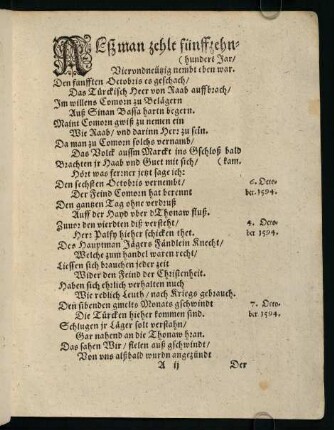 ALßman zehlt fünffzehn-
(hundert Jar/
Vierundneüntzig nembt eben war.
Den fünfften Octobris es geschach/
Das Türckisch Heer von Raab auffbrach/
Im willens Comorn zu Belägern
Auß Sinan Bassa hartn begern.
Maint Comorn gwiß zu nemen ein
Wie Raab/ vnd darinn Herr zu sein.
Da man zu Comorn solchs vernamb/
Das Volck aussm Marckt ins Gschloß bald
Brachten jr Haab vnd Guet mit sich/ (kam.
Hört was ferrner jetzt sage ich:
Den sechsten Octobris vernembt/ 6. Octo-
Der Feind Comorn hat berennt ber. 1594.
Den gantzen Tag ohne verdruß
Auff der Hayd vber dThonaw fluß.
Zuuor den vierdten diß versteht/ 4. Octo-
Herr Palfy hieher schicken thet. ber 1594.
Des Hauptman Jägers Fändlein Knecht/
Welche zum handel waren recht/
Liessen sich brauchen jeder zeit
Wider den Feind der Christenheit.
Haben sich ehrlich verhalten nuch
Wie redlich Leuth/ nach Kriegs gebrauch.
Den sibenden gmelts Monats gschwindt 7. Octo-
Die Türcken hieher kommen sind. ber 1594.
Schlugen jr Läger solt verstahn/
Gar nahend an die Thonaw hran.
Das sahen Wir/ fielen auß gschwindt/
Von vns alßbald wurdn angezündt
A ij Der